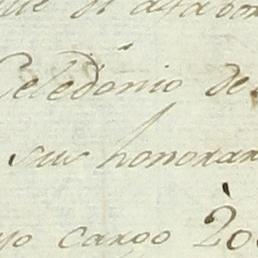 Celedonio de
sus honorar
yo cargo 20